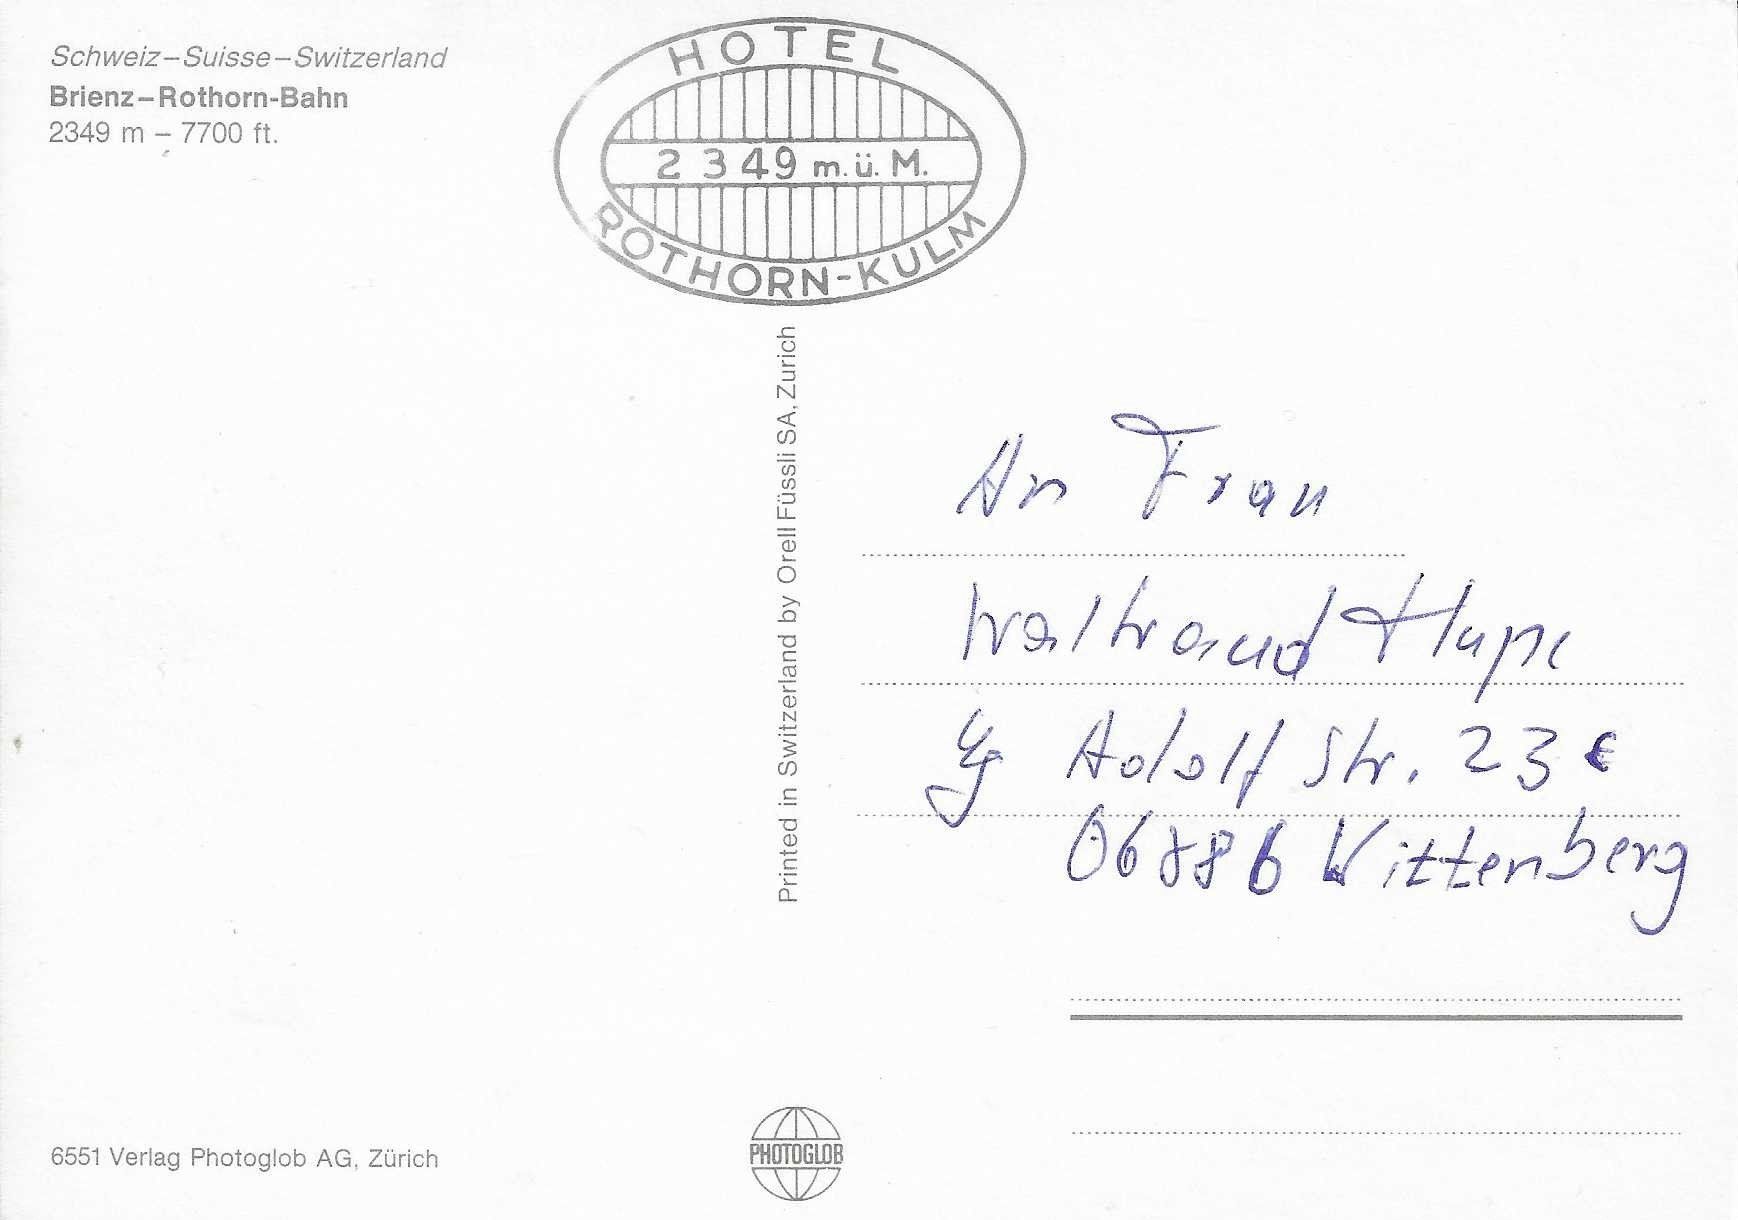 Schweiz–Suisse–Switzerland
Brienz–Rothorn-Bahn
2349 m – 7700 ft.
HOTEL
2349 m.ü.M.
ROTHORN-KULM
Printed in Switzerland by Orell Füssli SA, Zurich
An Frau
Waltraud Hupe
Adolf Str. 23
06886 Wittenberg
6551 Verlag Photoglob AG, Zürich
PHOTOGLOB